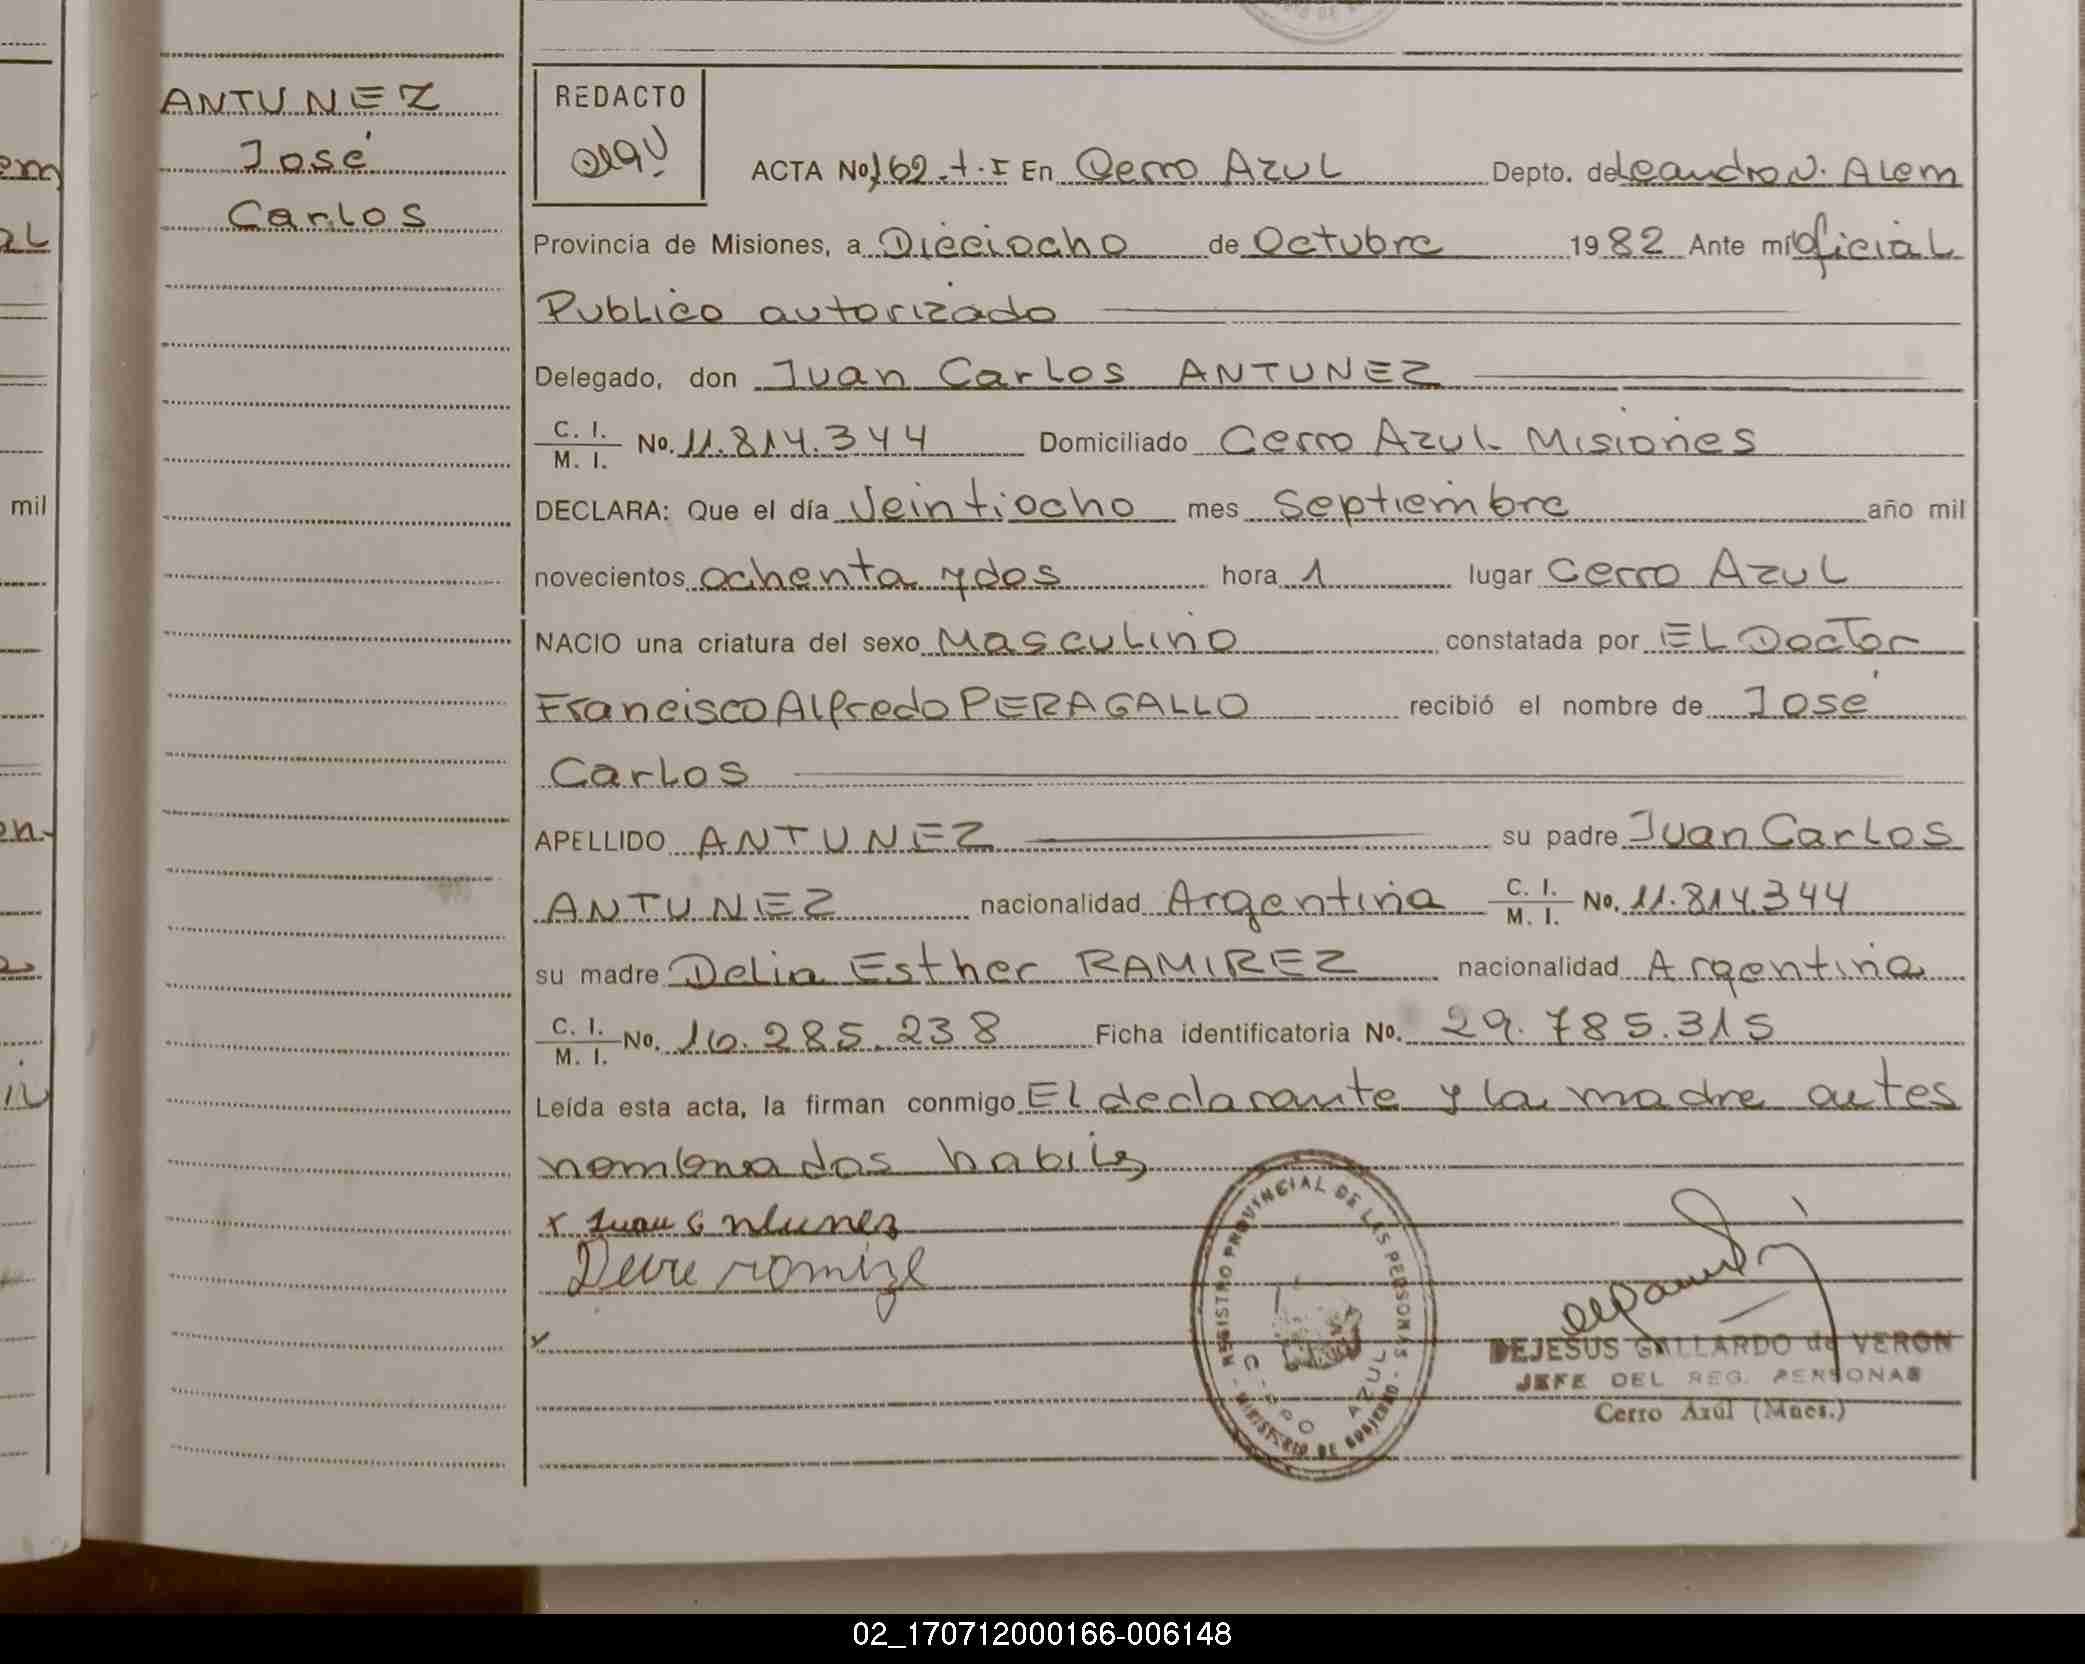 ANTUNEZ
José
Carlos
REDACTO
ACTA No 162.t.I En Cerro Azul Depto. de Leandro N. Alem
Provincia de Misiones, a Dieciocho de Octubre 1982 Ante mí Oficial
Publico autorizado
Delegado, don Juan Carlos ANTUNEZ
C. I.
M. I. No. 11.814.344 Domiciliado Cerro Azul- Misiones
DECLARA: Que el día Veintiocho mes Septiembre año mil
novecientos ochenta y dos hora 1 lugar Cerro Azul
NACIO una criatura del sexo Masculino constatada por El Doctor
Francisco Alfredo PERAGALLO recibió el nombre de José
Carlos
APELLIDO ANTUNEZ su padre Juan Carlos
ANTUNEZ nacionalidad Argentina C. I. M. I. No. 11.814.344
su madre Delia Esther RAMIREZ nacionalidad Argentina
C. I. M. I. No. 16.285.238 Ficha identificatoria No. 29.785.315
Leída esta acta, la firman conmigo El declarante y la madre antes
nombrados habiles
x Juan Antunez
REGISTRO PROVINCIAL DE LAS PERSONAS
CERRO AZUL
- MINISTERIO DE GOBIERNO -
DEJESUS GALLARDO de VERON
JEFE DEL REG. PERSONAS
Cerro Azúl (Mnes.)
mil
02_170712000166-006148